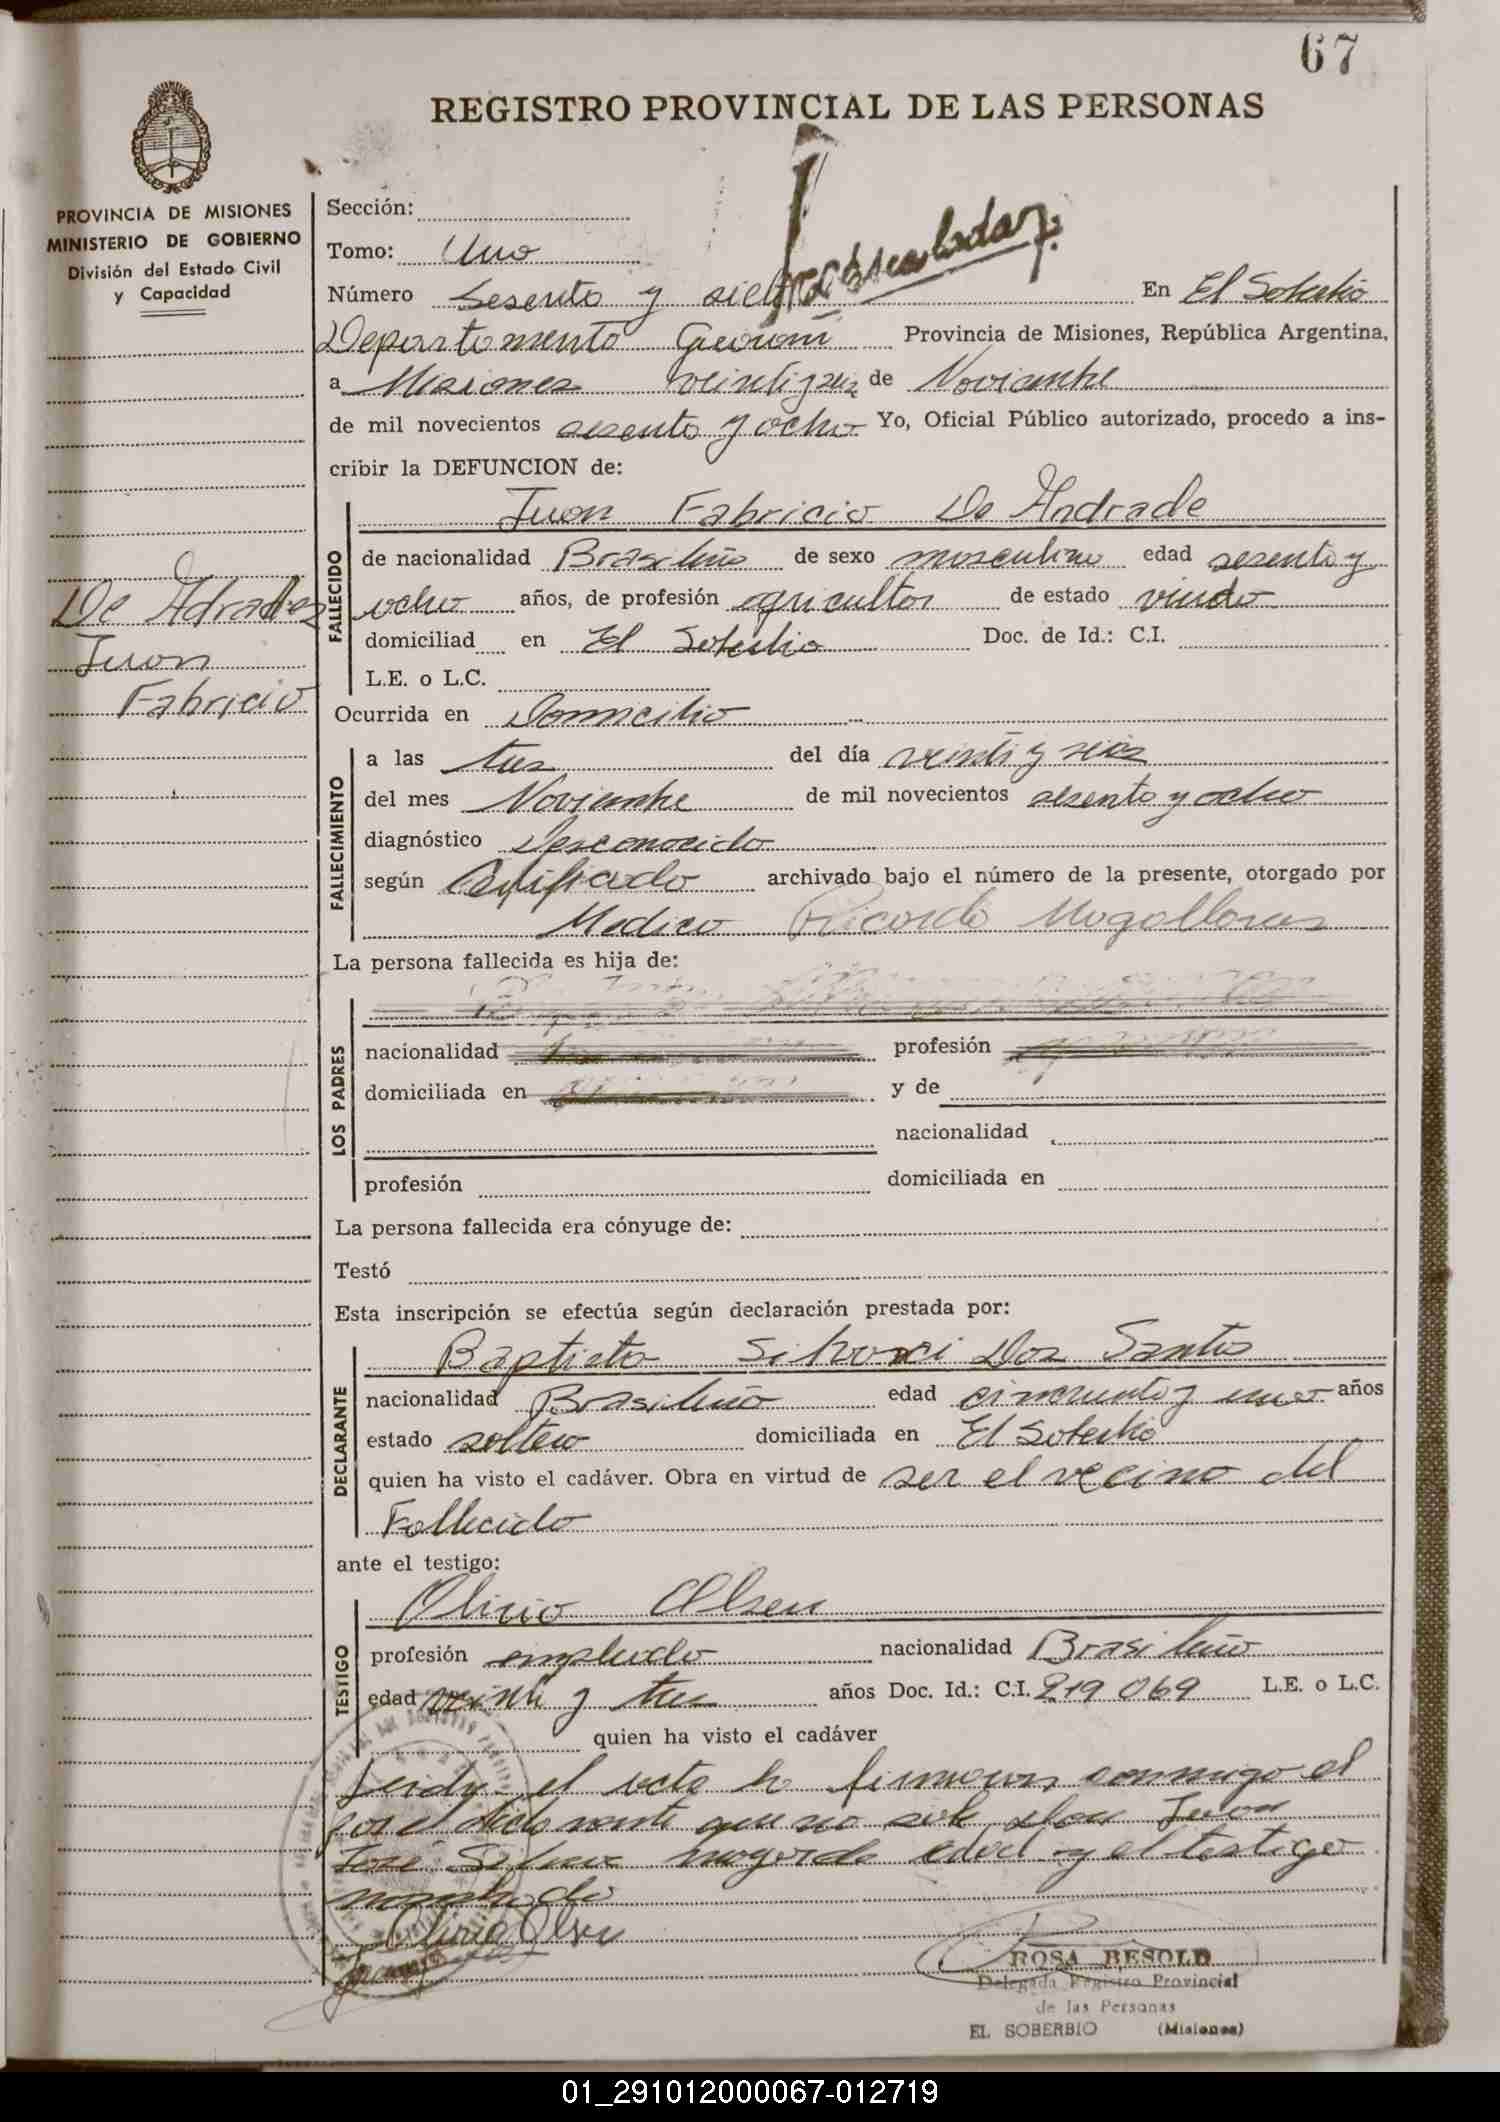 67
REGISTRO PROVINCIAL DE LAS PERSONAS
PROVINCIA DE MISIONES
MINISTERIO DE GOBIERNO
División del Estado Civil
y Capacidad
De Adrade
Juan
Fabricio
Sección:
Tomo: Uno
Número Sesenta y siete En El Soberbio
Departamento Guaraní Provincia de Misiones, República Argentina,
a Misiones veintiseis de Noviembre
de mil novecientos sesenta y ocho Yo, Oficial Público autorizado, procedo a ins-
cribir la DEFUNCION de:
FALLECIDO
Juan Fabricio De Andrade
de nacionalidad Brasileño de sexo masculino edad sesenta y
ocho años, de profesión agricultor de estado viudo
domiciliad en El Soberbio Doc. de Id.: C.I.
L.E. o L.C.
Ocurrida en Domicilio
FALLECIMIENTO
a las tres del día veinti y seis
del mes Noviembre de mil novecientos sesenta y ocho
diagnóstico Desconocido
según Certificado archivado bajo el número de la presente, otorgado por
Medico Ricardo
La persona fallecida es hija de:
LOS PADRES
nacionalidad profesión
domiciliada en y de
nacionalidad
profesión domiciliada en
La persona fallecida era cónyuge de:
Testó
Esta inscripción se efectúa según declaración prestada por:
DECLARANTE
Baptista Dos Santos
nacionalidad Brasileño edad cincuenta y uno años
estado soltero domiciliada en El Soberbio
quien ha visto el cadáver. Obra en virtud de ser el vecino del
Fallecido
ante el testigo:
TESTIGO
Olirio Olsen
profesión empleado nacionalidad Brasileño
edad veinti y tres años Doc. Id.: C.I. 219069 L.E. o L.C.
quien ha visto el cadáver
Leida el acta la firmaron conmigo el
por el declarante que no sabe Juan
José Silva mayor de edad y el testigo
nombrado
Olirio Olsen
ROSA BESOLD
Delegada Registro Provincial
de las Personas
EL SOBERBIO (Misiones)
01_291012000067-012719